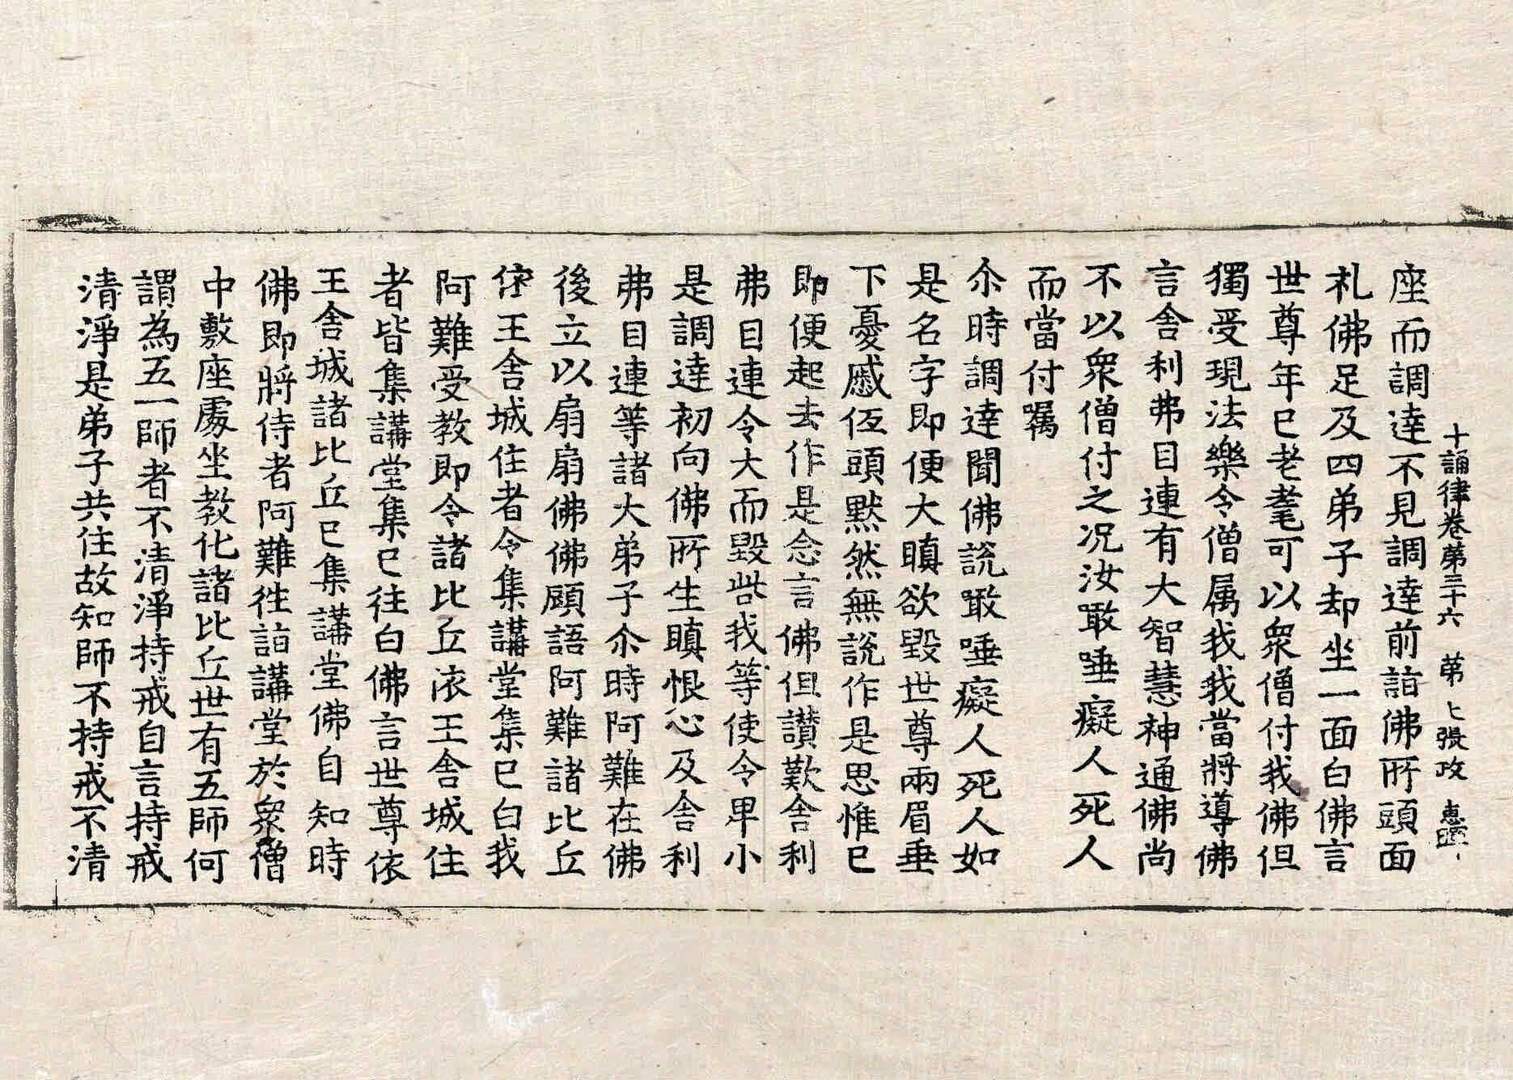 座而調達不見調達前詣佛所頭面
十誦律卷第三十六 第七張 攻
札佛足及四弟子却坐一面白佛言
世尊年已老耄可以衆僧付我佛但
獨受現法樂令僧属我我當將導佛
言舍利弗目連有大智慧神通佛尚
不以衆僧付之况汝噉唾癡人死人
而當付嘱
尒時調達聞佛説噉唾癡人死人如
是名字即便大瞋欲毀世尊兩眉垂
下憂慼伍頭黙然無説作是思惟已
即便起去作是念言佛但讃歎舍利
弗目連令大而毀呰我等使令卑小
是調達初向佛所生瞋恨心及舍利
弗目連等諸大弟子尒時阿難在佛
後立以扇扇佛佛顧語阿難諸比丘
依王舍城住者令集講堂集已白我
阿難受教即令諸比丘依王舍城住
者皆集講堂集已往白佛言世尊依
王舍城諸比丘已集講堂佛自知時
佛即將侍者阿難往詣講堂於衆僧
中敷座處坐教化諸比丘世有五師何
謂為五一師者不清淨持戒自言持戒
清淨是弟子共住故知師不持戒不清